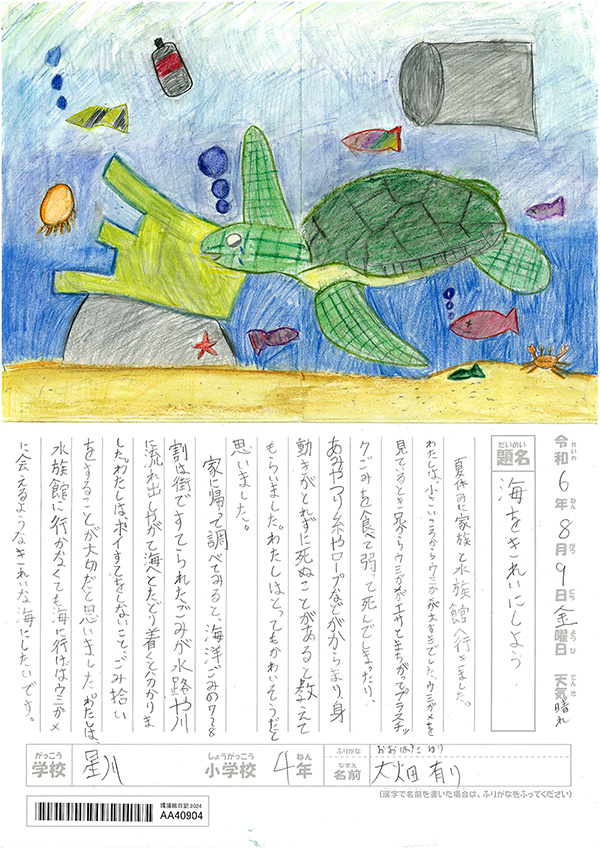 令和6年8月9日金曜日 天気晴れ
れいわ ねん がつ にち ようび てんき
だいめい
題名 海をきれいにしよう
夏休みに家族と水族館へ行きました。
わたしは、小さいころからウミガメが大すきでした。ウミガメを
見ているとき兄からウミガメがエサとまちがってプラスチッ
クごみを食べて弱って死んでしまったり、
あみやつり糸やロープなどがからまり、身
動きがとれずに死ぬことがあると教えて
もらいました。わたしはとってもかわいそうだと
思いました。
家に帰って調べてみると、海洋ごみの7〜8
割は街ですてられたごみが水路や川
に流れ出し、やがて海へとたどり着くと分かりま
した。わたしはポイすてをしないこと、ごみ拾い
をすることが大切だと思いました。わたしは、
水族館に行かなくても海に行けばウミガメ
に会えるようなきれいな海にしたいです。
がっこう しょうがっこう ねん
学校 星川 小学校 4年
ふりがな おおはた
なまえ
名前 大畑 有り
(漢字で名前を書いた場合は、ふりがなをふってください)
環境絵日記 2024
AA40904